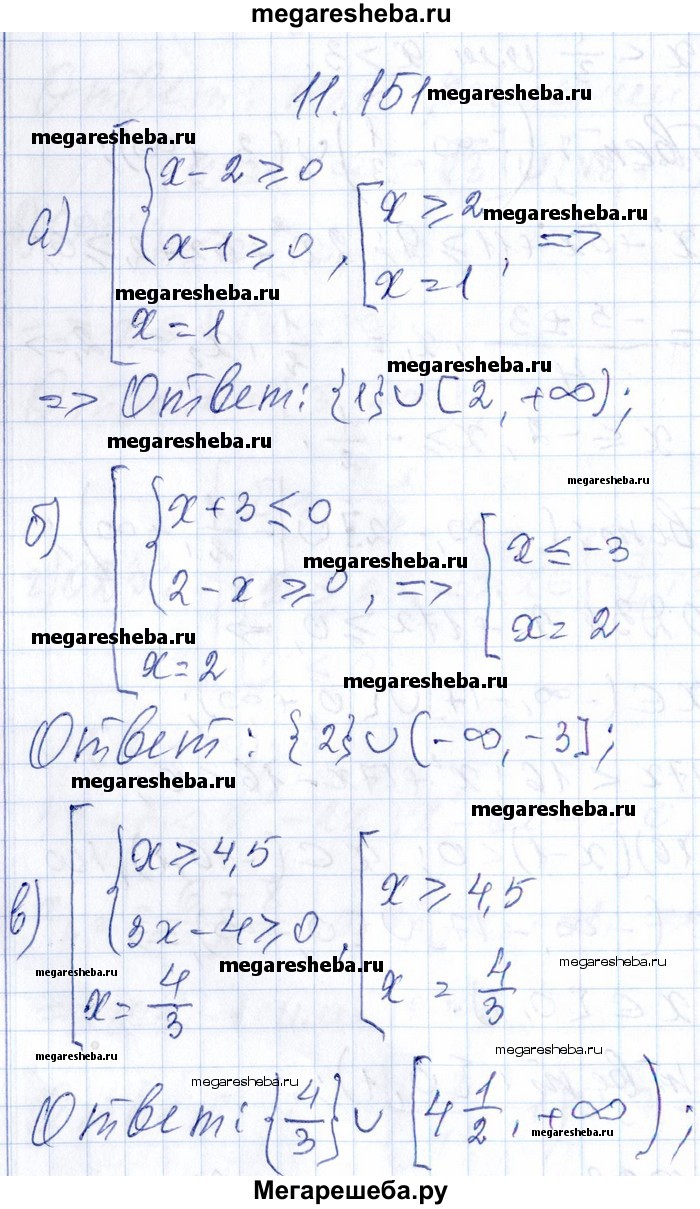 megaresheba.ru
11.151 megaresheba.ru
megaresheba.ru
а) [ { x - 2 ⩾ 0
x - 1 ⩾ 0 ,
x = 1
[ x ⩾ 2 megaresheba.ru
x = 1 , =>
megaresheba.ru
megaresheba.ru
=> Ответ: {1} ∪ [2, +∞);
megaresheba.ru
megaresheba.ru
б) [ { x + 3 ⩽ 0
2 - x ⩾ 0 , =>
x = 2
[ x ⩽ -3
x = 2
megaresheba.ru
megaresheba.ru
megaresheba.ru
Ответ: {2} ∪ (-∞, -3];
megaresheba.ru
megaresheba.ru
в) [ { x ⩾ 4,5
3x - 4 ⩾ 0 ,
x = 4/3
[ x ⩾ 4,5
x = 4/3
megaresheba.ru
megaresheba.ru
megaresheba.ru
megaresheba.ru
megaresheba.ru
megaresheba.ru
Ответ: {4/3} ∪ [4 1/2, +∞);
megaresheba.ru
Мегарешеба.ру